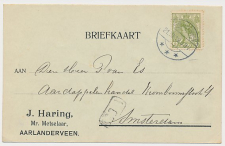 BRIEFKAART
AAN Den Heer P van Es
Aardappelenhandel
Amsterdam
J. Haring,
Mr. Metselaar,
AARLANDERVEEN.